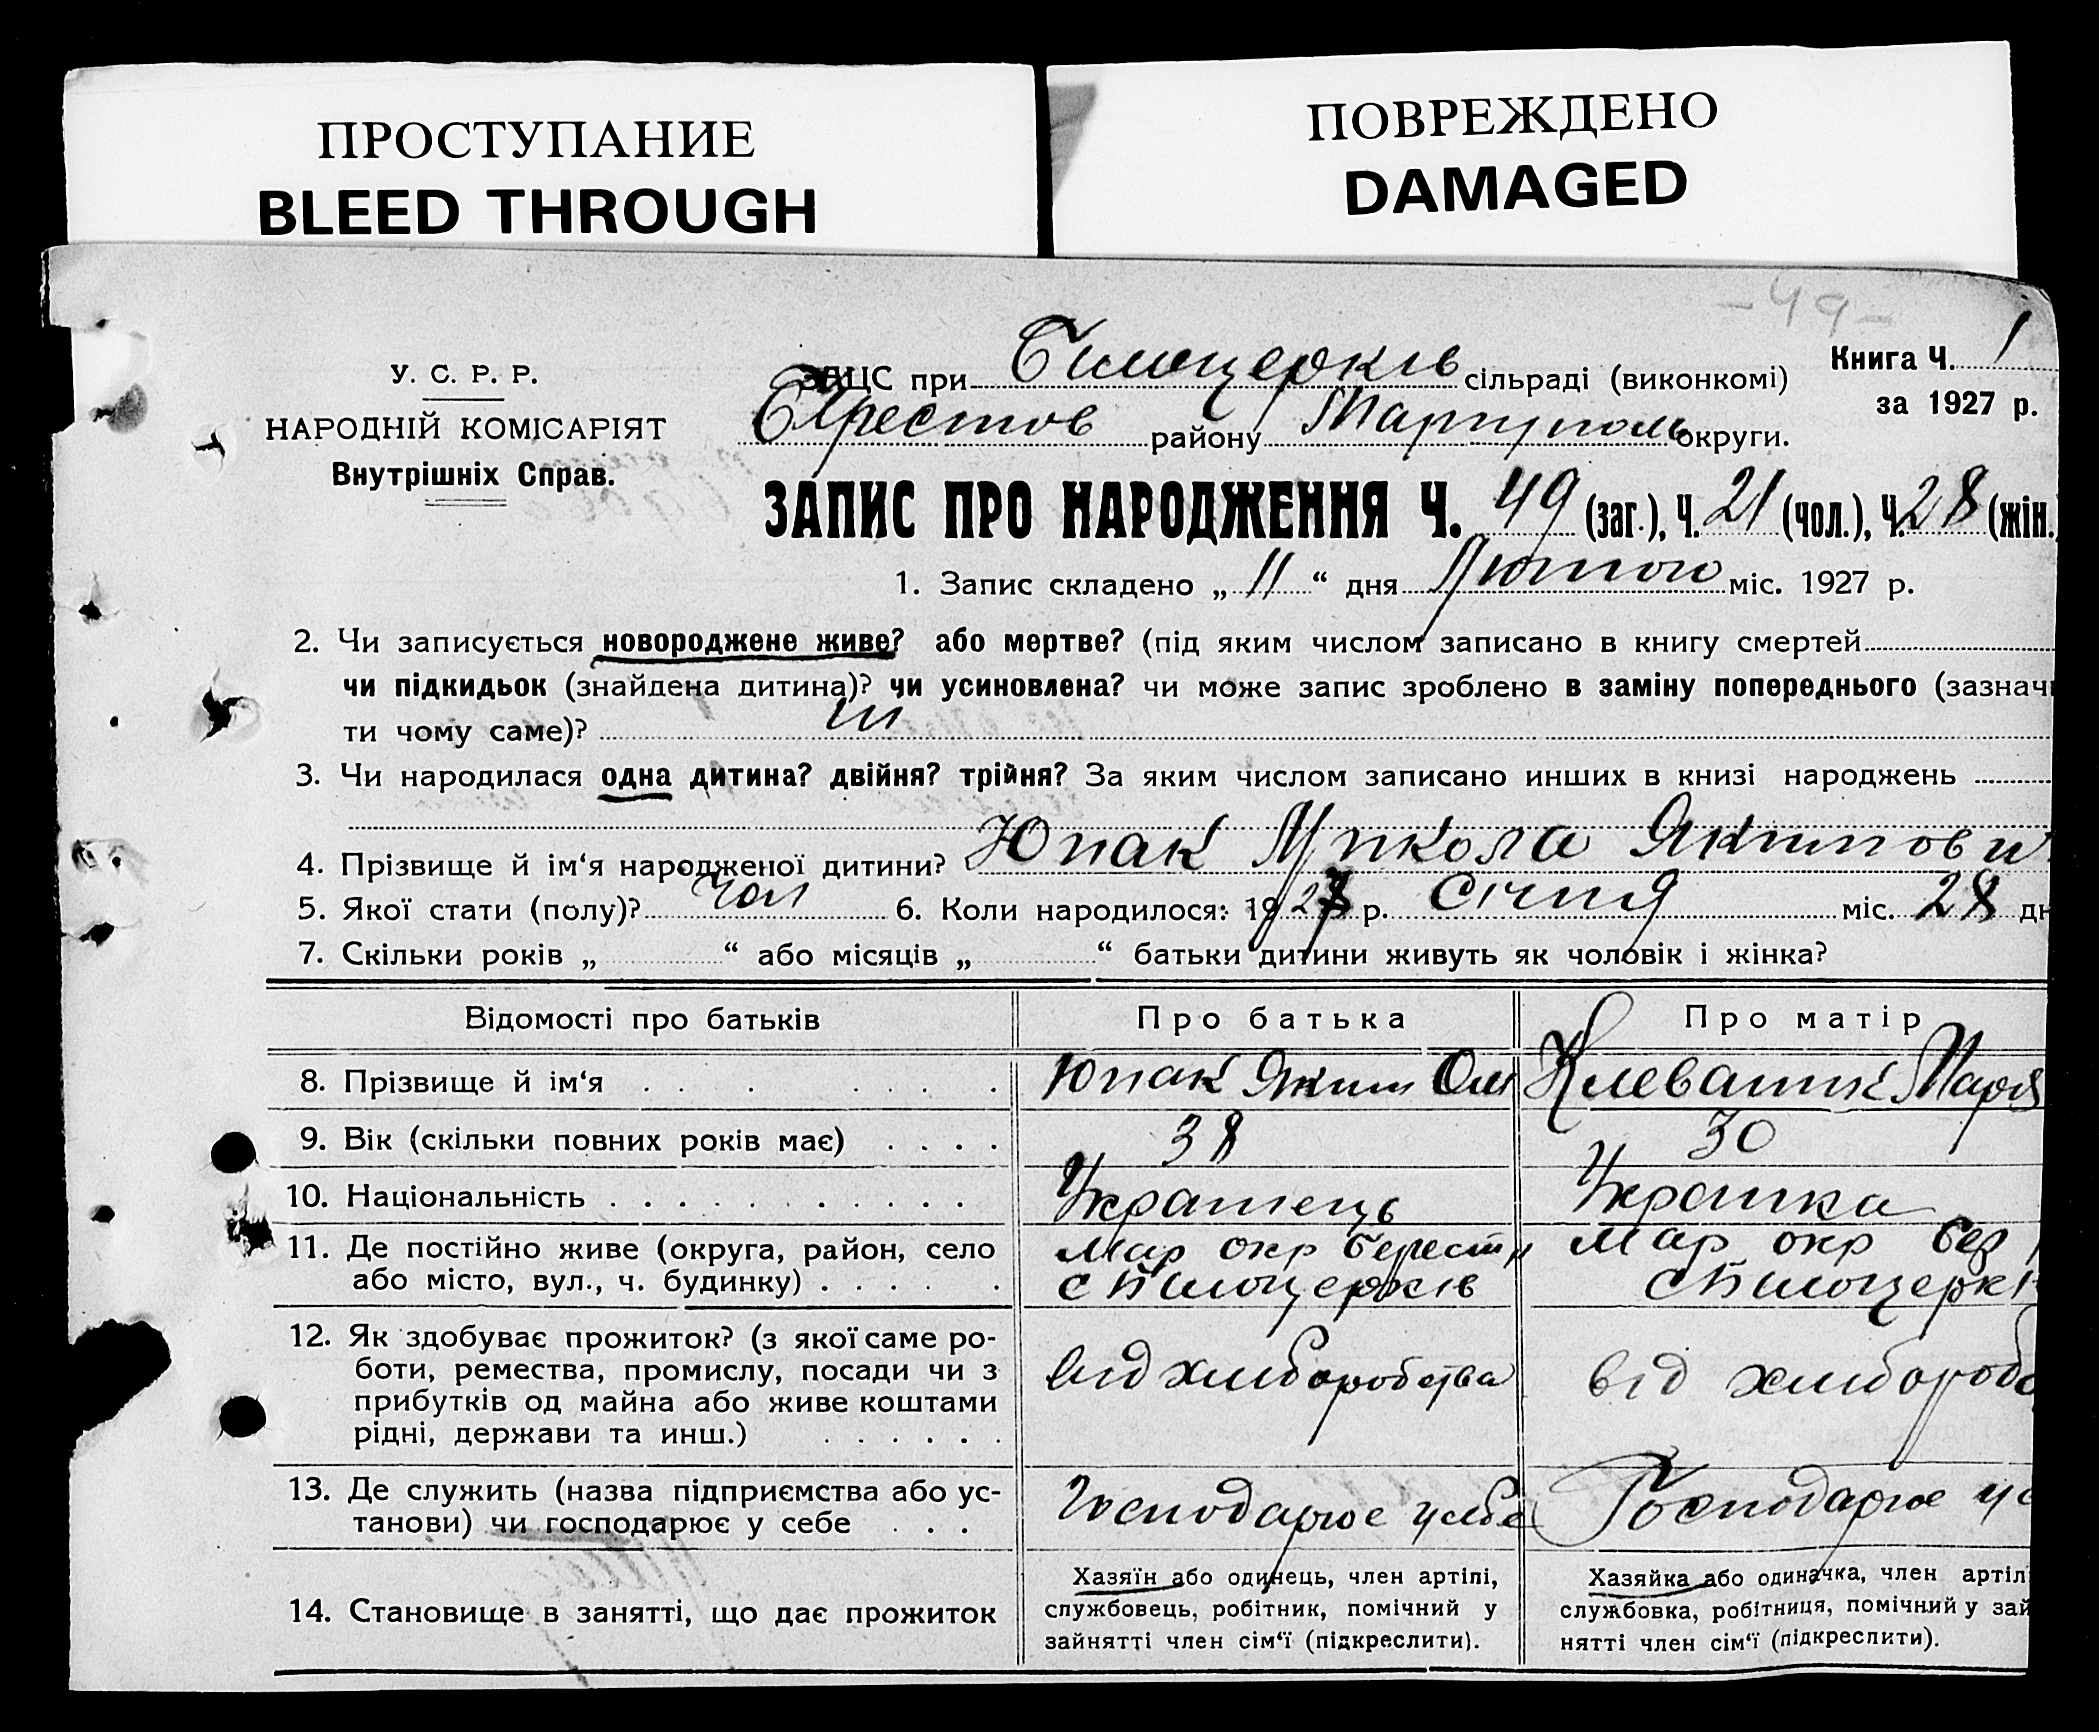 ПРОСТУПАНИЕ
BLEED THROUGH
ПОВРЕЖДЕНО
DAMAGED
- 49 -
У. С. Р. Р.
НАРОДНІЙ КОМІСАРІЯТ
Внутрішніх Справ.
Книга Ч. 1
за 1927 р.
ЗАЦС при Білоцерків сільраді (виконкомі)
Берестов району Маріуполь округи.
ЗАПИС ПРО НАРОДЖЕННЯ Ч. 49 (заг.), Ч. 21 (чол.), Ч. 28 (жін.)
1. Запис складено „ 11 “ дня Лютого міс. 1927 р.
2. Чи записується новороджене живе? або мертве? (під яким числом записано в книгу смертей
чи підкидьок (знайдена дитина)? чи усиновлена? чи може запис зроблено в заміну попереднього (зазначи
ти чому саме)? ні
3. Чи народилася одна дитина? двійня? трійня? За яким числом записано инших в книзі народжень
4. Прізвище й ім‘я народженої дитини? Юпак Микола Якимови
5. Якої стати (полу)? чол 6. Коли народилося: 1927 р. Січня міс. 28 дн
7. Скільки років „ “ або місяців „ “ батьки дитини живуть як чоловік і жінка?
Відомості про батьків Про батька Про матір
8. Прізвище й ім‘я Юпак Яким Ом Клеватик Марія
9. Вік (скільки повних років має) 38 30
10. Національність Українець Українка
11. Де постійно живе (округа, район, село Мар окр Берест Мар окр Бер
або місто, вул., ч. будинку) с Білоцерків с Білоцеркі
12. Як здобуває прожиток? (з якої саме ро-
боти, ремества, промислу, посади чи з від хліборобства від хлібороб
прибутків од майна або живе коштами
рідні, держави та инш.)
13. Де служить (назва підприємства або ус- Господарює у себе Господарює у с
танови) чи господарює у себе
14. Становище в занятті, що дає прожиток
Хазяїн або одинець, член артілі,
службовець, робітник, помічний у
зайнятті член сім‘ї (підкреслити).
Хазяйка або одиначка, член артіл
службовка, робітниця, помічний у зай
нятті член сім‘ї (підкреслити).